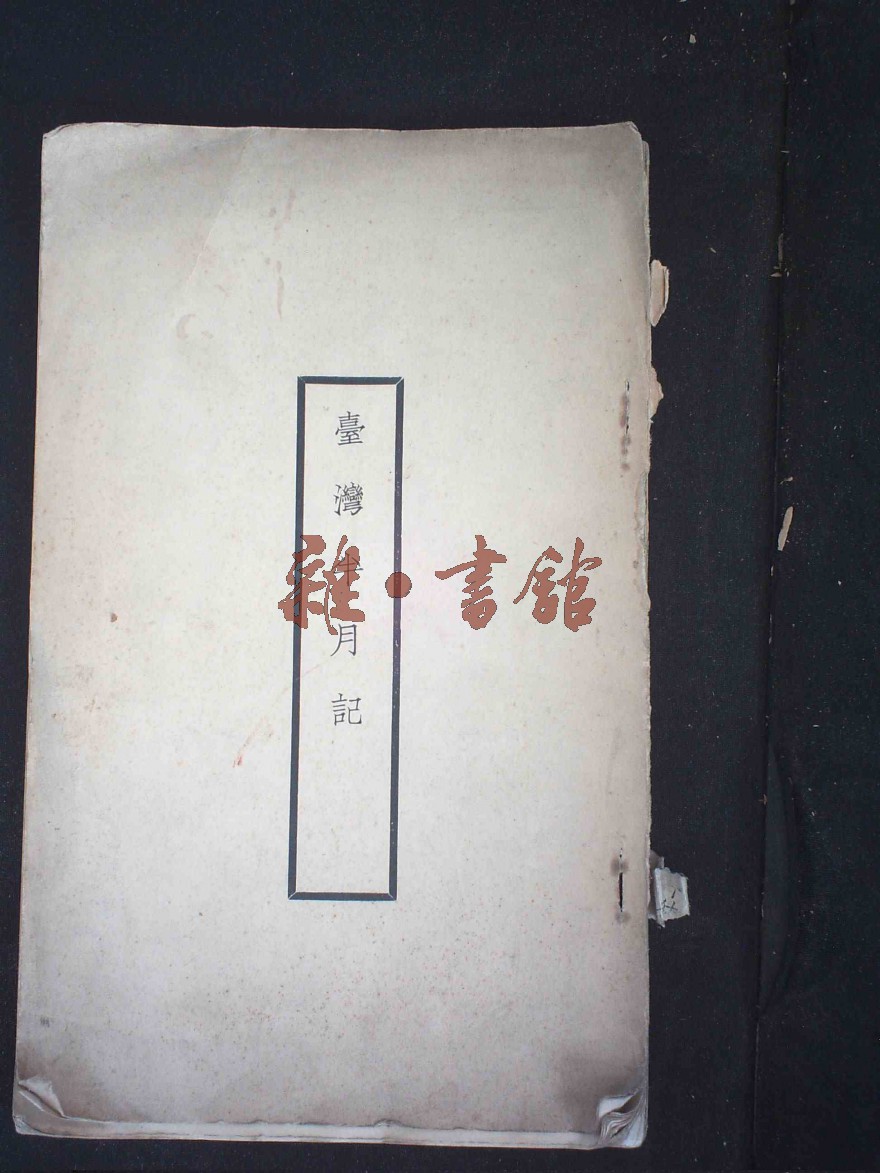 臺灣半月記
雜·書館